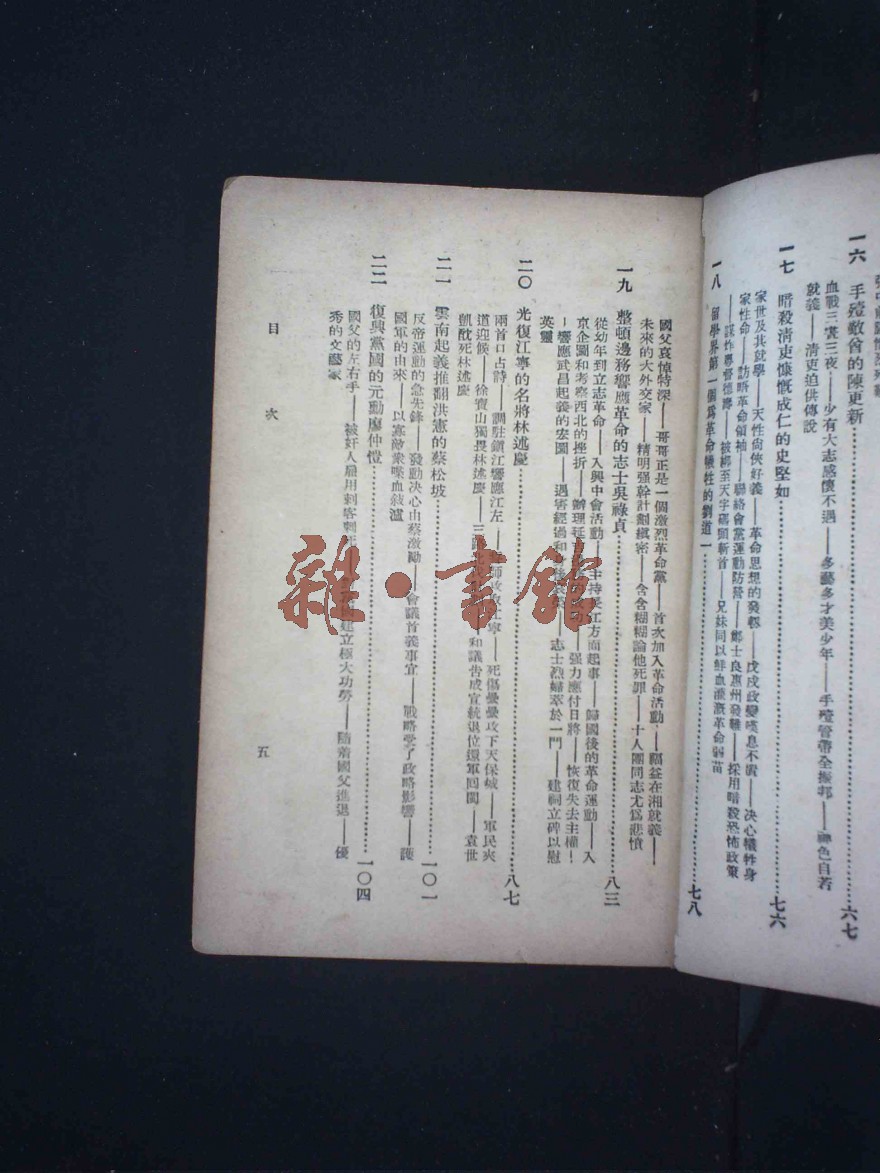 一六 手殪數酋的陳更新 六七
血戰三晝二夜——少有大志感懷不遇——多藝多才美少年——手殪管帶全振邦——神色自若
就義——清吏迫供傳說
一七 暗殺清吏慷慨成仁的史堅如 七六
家世及其就學——天性尙俠好義——革命思想的發軔——戊戌政變嘆息不置——決心犧牲身
家性命——訪晤革命領袖——聯絡會黨運動防營——鄭士良惠州發難——採用暗殺恐怖政策
——謀炸粤督德壽——被綁至天字碼頭斬首——兄妹同以鮮血灌漑革命嫩苗
一八 留學界第一個爲革命犧牲的劉道一 七八
國父哀悼特深——哥哥正是一個激烈革命黨——首次加入革命活動——歸益在湘就義——
未來的大外交家——精明强幹計劃縝密——含含糊糊論他死罪——十人團同志尤爲悲憤
一九 整頓邊務響應革命的志士吳祿貞 八三
從幼年到立志革命——入興中會活動——主持長江方面起事——歸國後的革命運動——入
京企圖和考察西北的挫折——辦理延 ——强力應付日將——恢復失去主權——
響應武昌起義的宏圖——遇害經過和 ——志士烈婦萃於一門——建祠立碑以慰
英靈
二〇 光復江寧的名將林述慶 八七
兩首口占詩——調駐鎭江響應江左—— 師攻 江寧——死傷纍纍攻下天保城——軍民夾
道迎候——徐寶山獨畏林述慶——三 和議吿成宣統退位還軍回閩——袁世
凱酖死林述慶
二一 雲南起義推翻洪憲的蔡松坡 一〇一
反帝運動的急先鋒——發動決心由蔡激勵——會議首義事宜——戰略受了政略影響——護
國軍的由來——以寡敵衆喋血敍瀘
二二 復興黨國的元勳廖仲愷 一〇四
國父的左右手——被奸人雇用刺客刺死—— 建立極大功勞——隨着國父進退——優
秀的文藝家
目 次
五
雜·書館